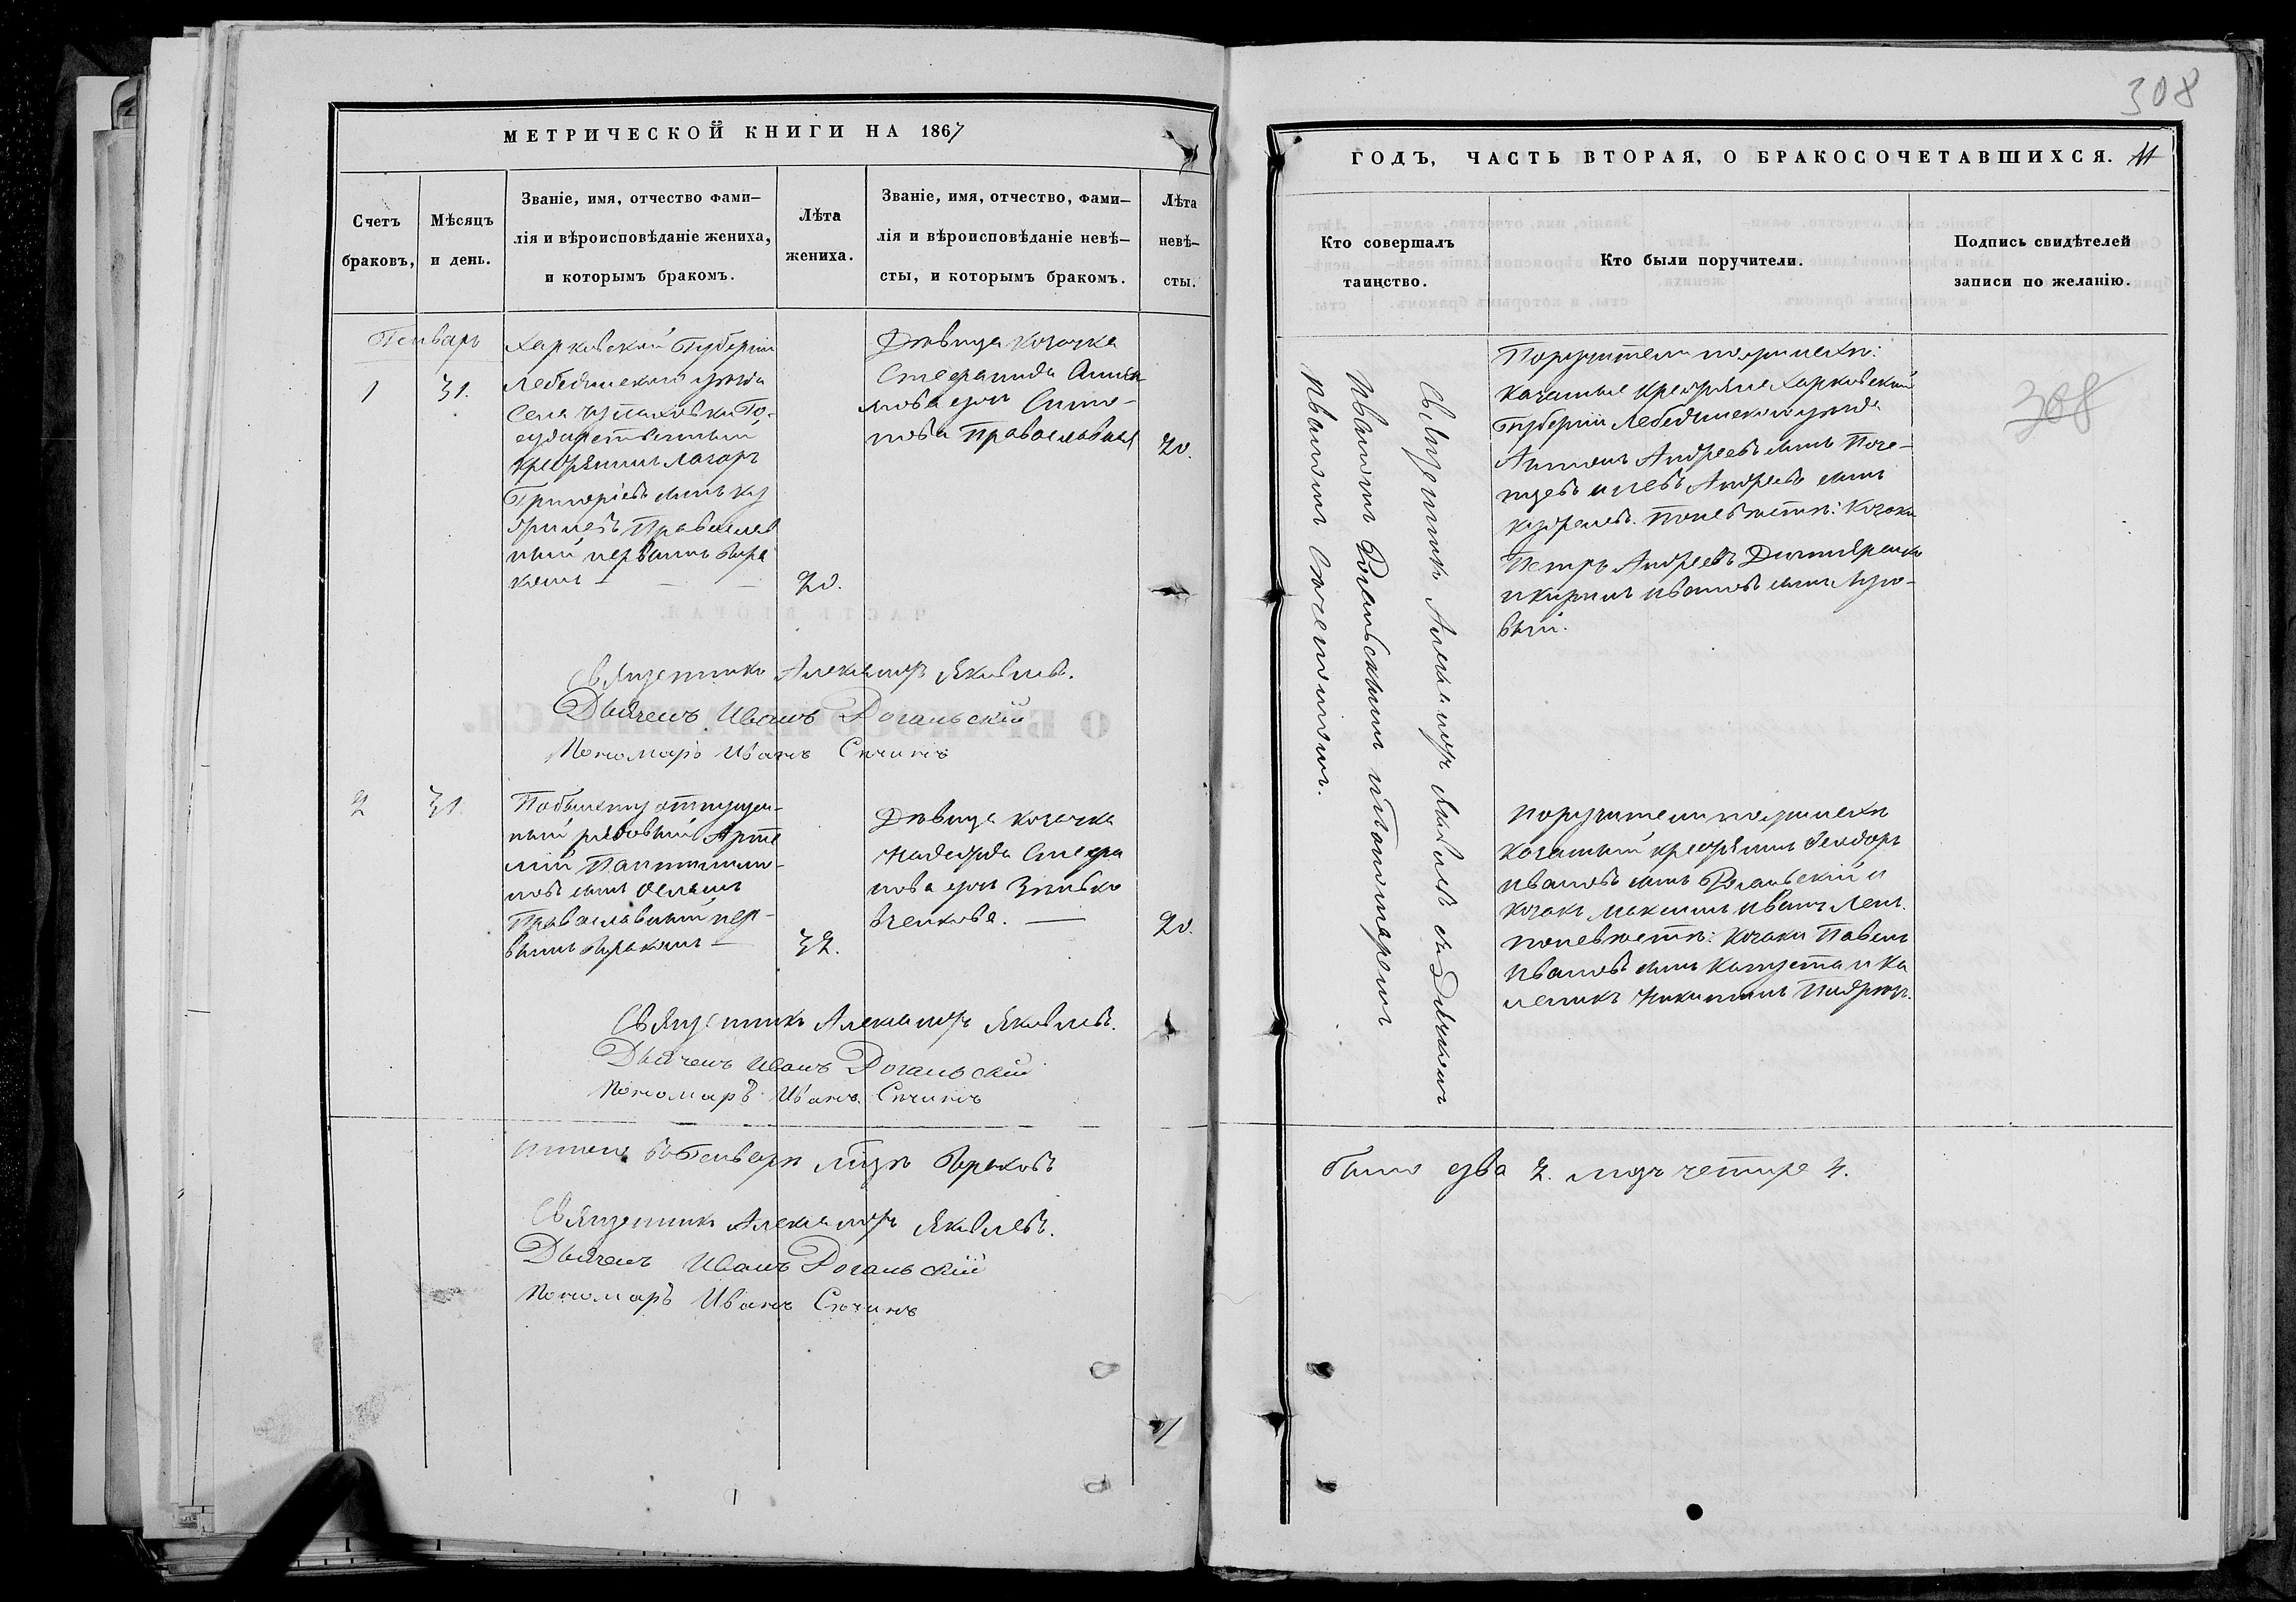 308
МЕТРИЧЕСКОЙ КНИГИ НА 1867
Счетъ
браковъ,
Мѣсяцъ
и день.
Званіе, имя, отчество фами–
лія и вѣроисповѣданіе жениха,
и которымъ бракомъ.
Лѣта
жениха.
Званіе, имя, отчество, фами–
лія и вѣроисповѣданіе невѣ–
сты, и которымъ бракомъ.
Лѣта
невѣ–
сты.
Генварь
1
31.
Харковской Губерніи
Лебединскаго уѣзда
Села Го-
сударственный
крестьянинъ Лазарь
Григоріевъ сынъ
Православ
ный первымъ бра
комъ
20.
Дѣвица козачка
Стефанида
мова дочь
нова Православная
20.
Священникъ Александръ Яковлевъ.
Дьячекъ Иванъ Рогальскій
Пономарь Иванъ Сѣчинъ
2
31.
отпущен-
ный рядовый Арте
мій
новъ сынъ
Православный пер-
вымъ бракомъ
32.
Дѣвица козачка
Надежда Стефа
нова дочь Зинько
вченкова.
20.
Священникъ Александръ Яковлевъ.
Дьячекъ Иванъ Рогальскій
Пономарь Иванъ Сѣчинъ
Итого въ Генварѣ мцѣ браковъ
Священникъ Александръ Яковлевъ.
Дьячекъ Иванъ Рогальскій
Пономарь Иванъ Сѣчинъ
ГОДЪ, ЧАСТЬ ВТОРАЯ, О БРАКОСОЧЕТАВШИХСЯ.
Кто совершалъ
таинство.
Кто были поручители.
Подпись свидѣтелей
записи по желанію.
Священникъ Александръ Яковлевъ съ Дьячкомъ
Иваномъ Рогальскимъ и Пономаремъ
Иваномъ Сѣчинымъ.
Поручители по женихѣ:
казенные крестьяне Харковской
Губерніи Лебединскаго уѣзда
Антонъ Андреевъ сынъ
и Левъ Андреевъ сынъ
По невѣстѣ: козаки
Петръ Андреевъ
и Кирилъ Ивановъ сынъ
вый.
308
Поручители по женихѣ
казенный крестьянинъ Феодоръ
Ивановъ сынъ Рогальскій и
козакъ Максимъ
По невѣстѣ: козаки Павелъ
Ивановъ сынъ Капуста и Ка
леникъ Никитинъ
было два 2. лицъ четыре 4.